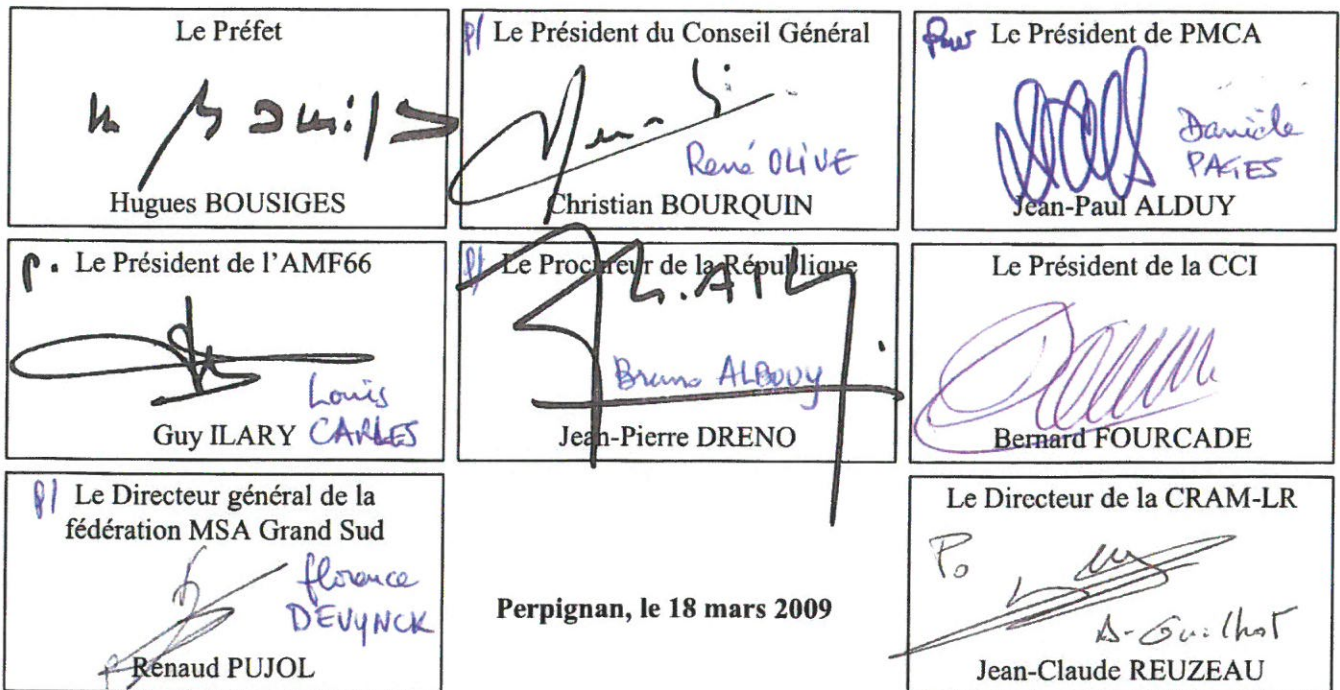 Le Préfet
Hugues BOUSIGES
p/ Le Président du Conseil Général
René OLIVE
Christian BOURQUIN
Pour Le Président de PMCA
Danièle
PAGES
Jean-Paul ALDUY
p. Le Président de l'AMF66
Louis
Guy ILARY CARLES
p/ Le Procureur de la République
Bruno ALBOUY
Jean-Pierre DRENO
Le Président de la CCI
Bernard FOURCADE
p/ Le Directeur général de la
fédération MSA Grand Sud
florence
DEVYNCK
Renaud PUJOL
Perpignan, le 18 mars 2009
Le Directeur de la CRAM-LR
Po
A-Guilhot
Jean-Claude REUZEAU